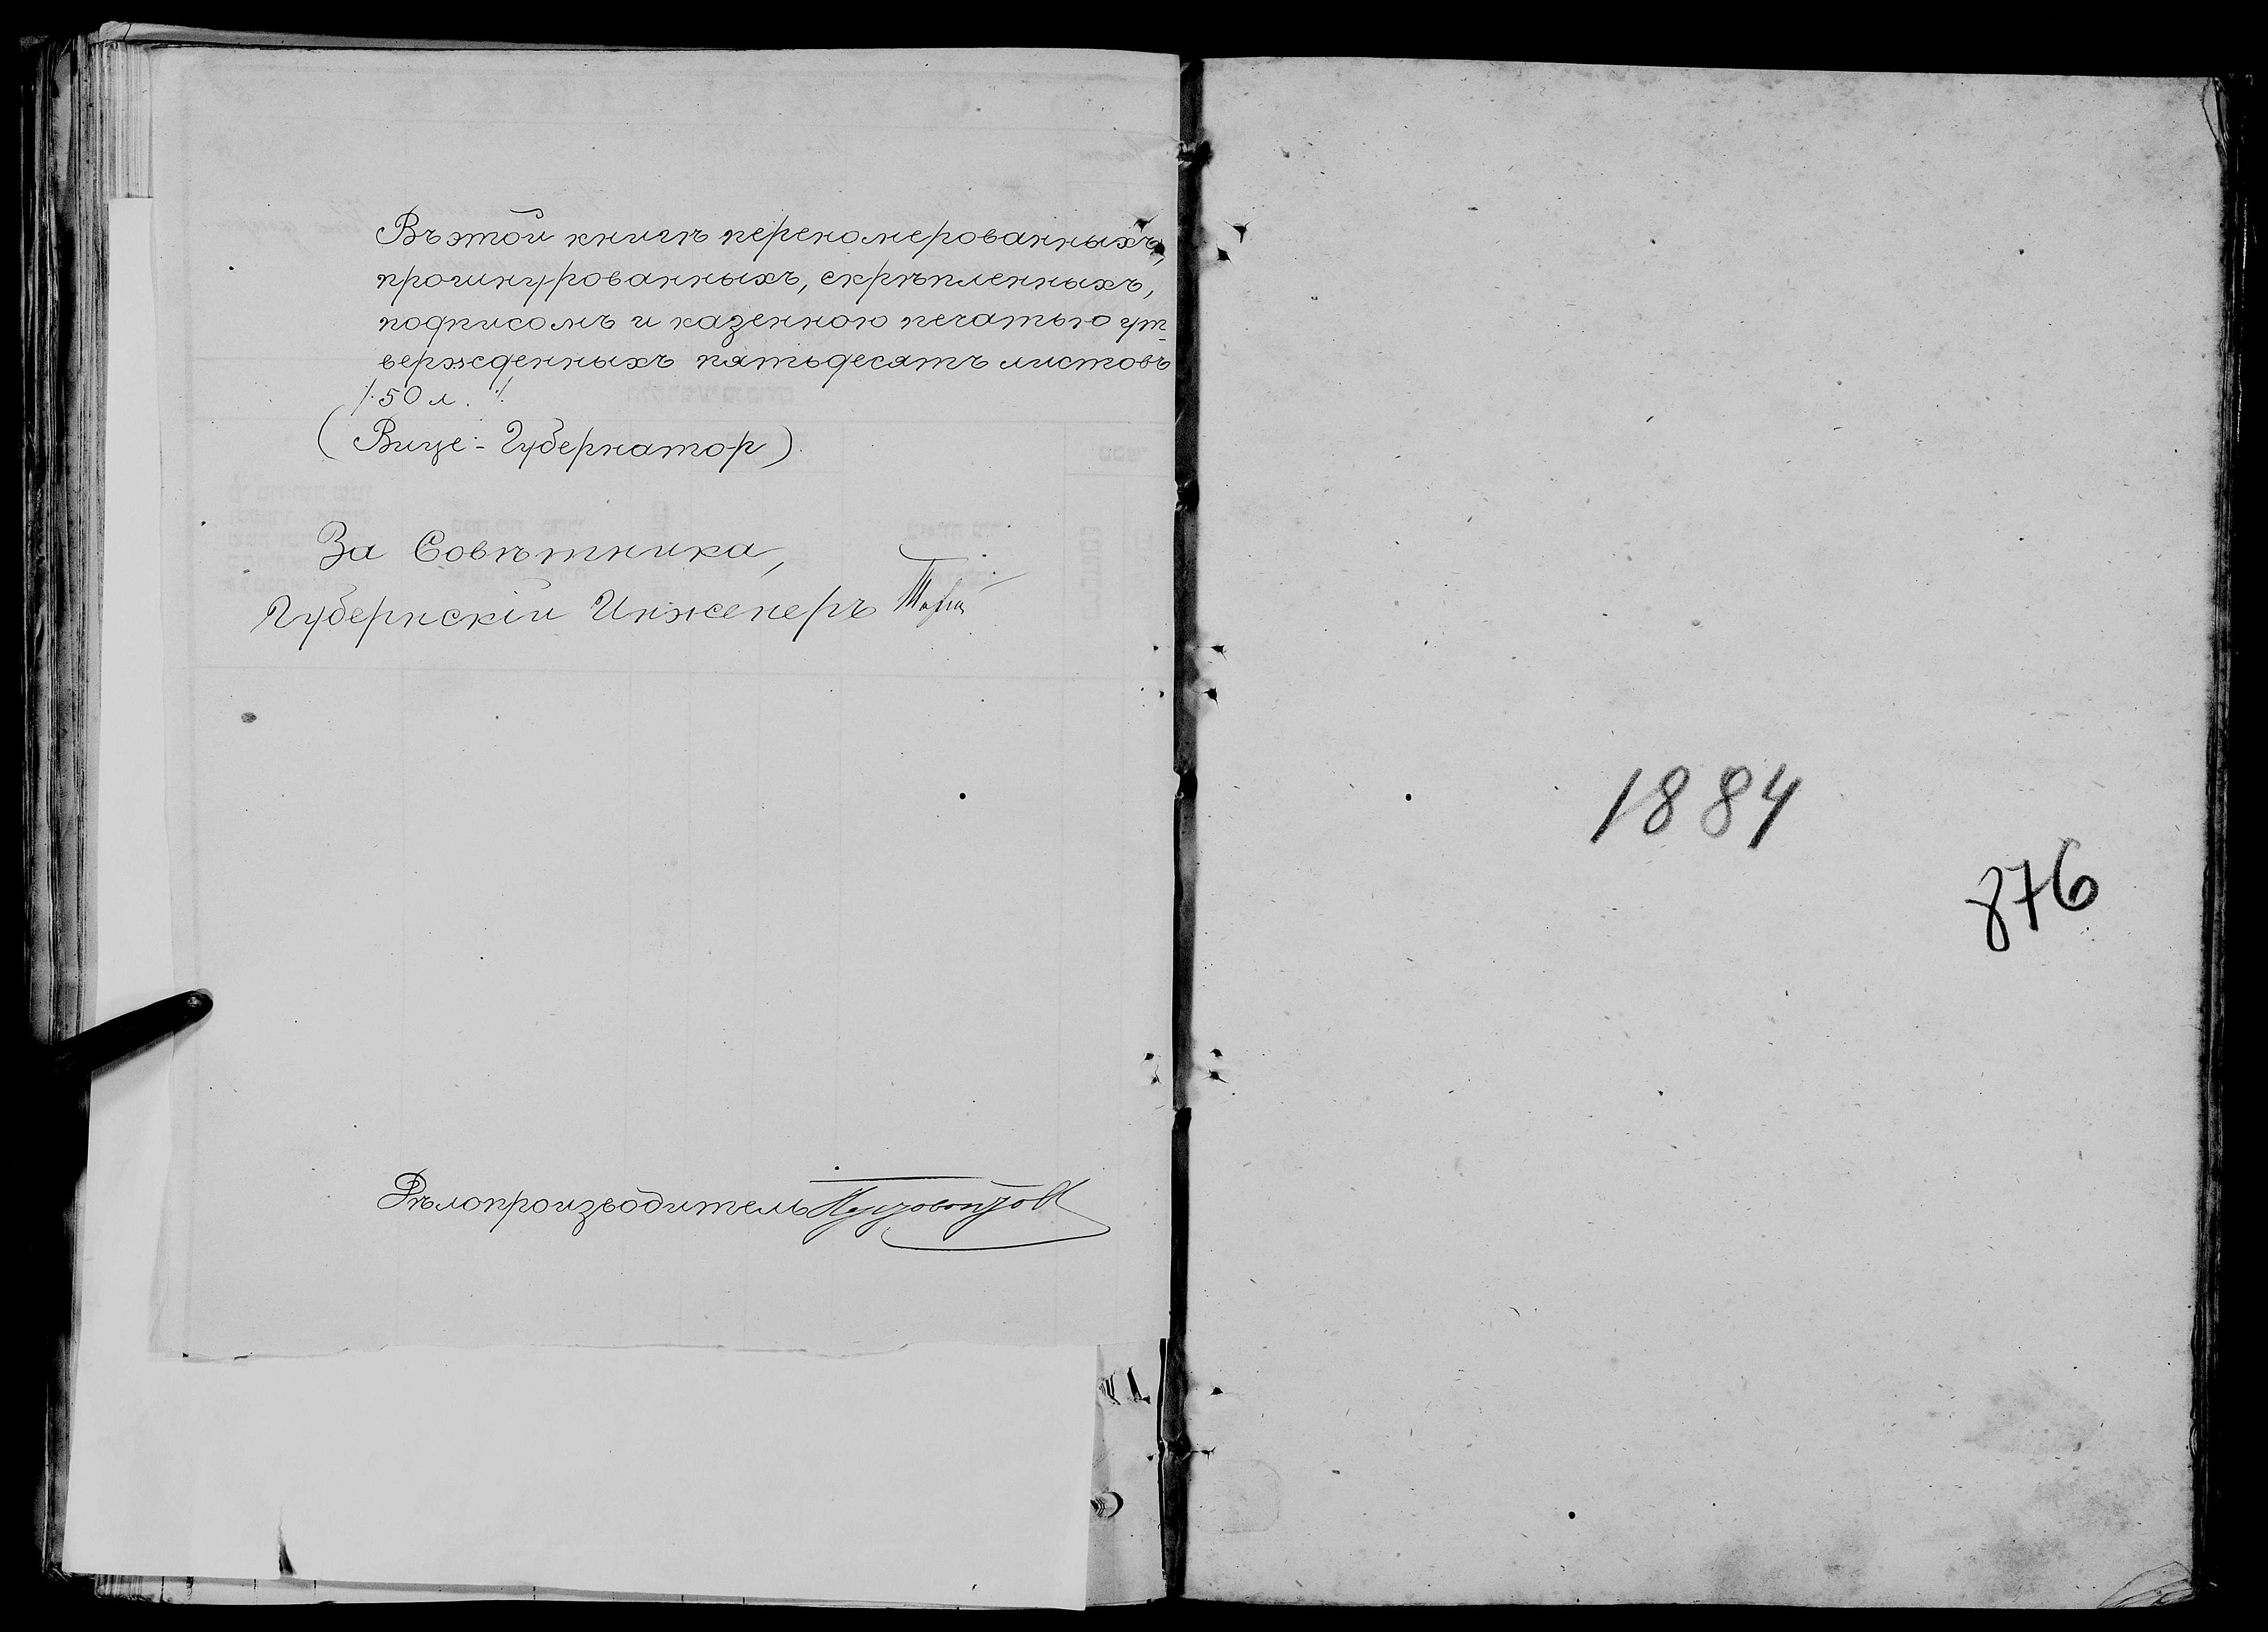 Въ этой книгѣ перенумерованныхъ,
прошнурованныхъ, скрѣпленныхъ,
подписомъ и казенною печатью ут-
вержденныхъ пятьдесятъ листовъ
/. 50 л. ./.
(Вице-Губернатор)
За Совѣтника,
Губернскій Инженеръ
Дѣлопроизводитель
1884
876